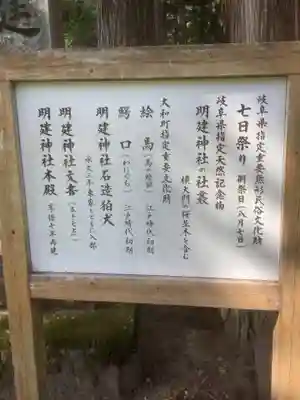 岐阜県指定重要無形民俗文化財
七日祭り 例祭日(八月七日)
岐阜県指定天然記念物
明建神社の社叢
横大門の桜並木を含む
大和町指定重要文化財
絵馬 江戸時代初期
鰐口(わにぐち) 江戸時代初期
明建神社石造狛犬
明建神社文書
明建神社本殿